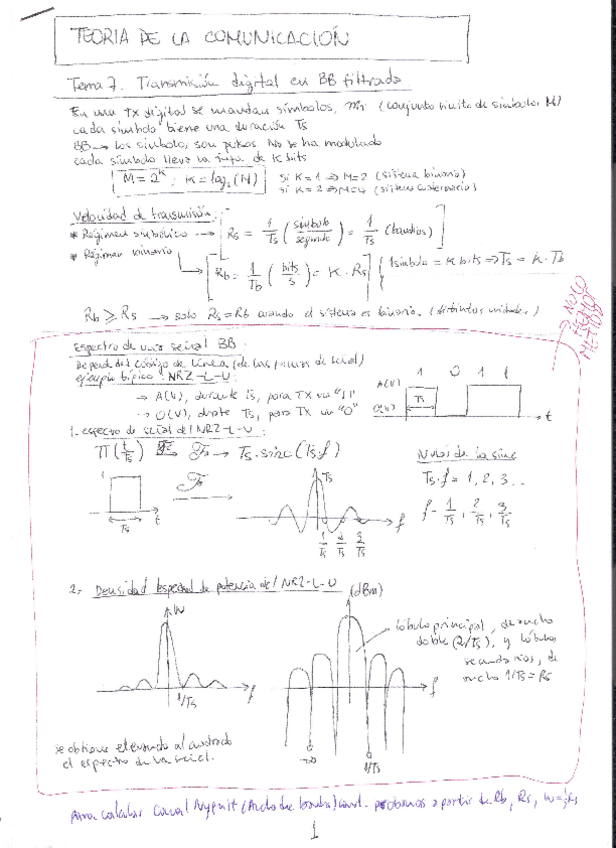 TEORIA DE LA COMUNICACIÓN
Tema 7. Transmisión digital en BB filtrado
En una TX digital se mandan símbolos, mi (conjunto finito de símbolos M)
cada símbolo tiene una duración Ts
BB → los símbolos son pulsos. No se ha modulado
cada símbolo lleva la info. de K bits
M = 2^K ; K = log₂(M)
si K = 1 ⇒ M=2 (sistema binario)
si K = 2 ⇒ M=4 (sistema cuaternario)
Velocidad de transmisión:
* Régimen simbólico → Rs = 1/Ts (símbolo/segundo) = 1/Ts (baudios)
* Régimen binario → Rb = 1/Tb (bits/s) = K · Rs { 1 símbolo = K bits ⇒ Ts = K · Tb
Rb ≥ Rs → solo Rs = Rb cuando el sistema es binario. (distintas unidades)
Espectro de una señal BB:
Depende del código de línea (de las formas de señal)
ejemplo típico: NRZ-L-U:
→ A(V), durante Ts, para TX un "1"
→ 0(V), durante Ts, para TX un "0"
A(V) 1 0 1 1
0(V) Ts t
1. espectro de señal del NRZ-L-U:
Π(t/Ts) → Ts · sinc(Ts·f)
Nulos de la sinc
Ts·f = 1, 2, 3 ...
f = 1/Ts, 2/Ts, 3/Ts
1 Ts t
Ts 1/Ts 2/Ts 3/Ts f
2. Densidad espectral de potencia del NRZ-L-U
W 1/Ts f
(dBm) -∞ 1/Ts f
lóbulo principal, de ancho
doble (2/Ts), y lóbulos
secundarios, de
ancho 1/Ts = Rs
se obtiene elevando al cuadrado
el espectro de la señal.
Para calcular Canal Nyquist (Ancho de banda) a partir de Rb, Rs, W = ½Rs
1